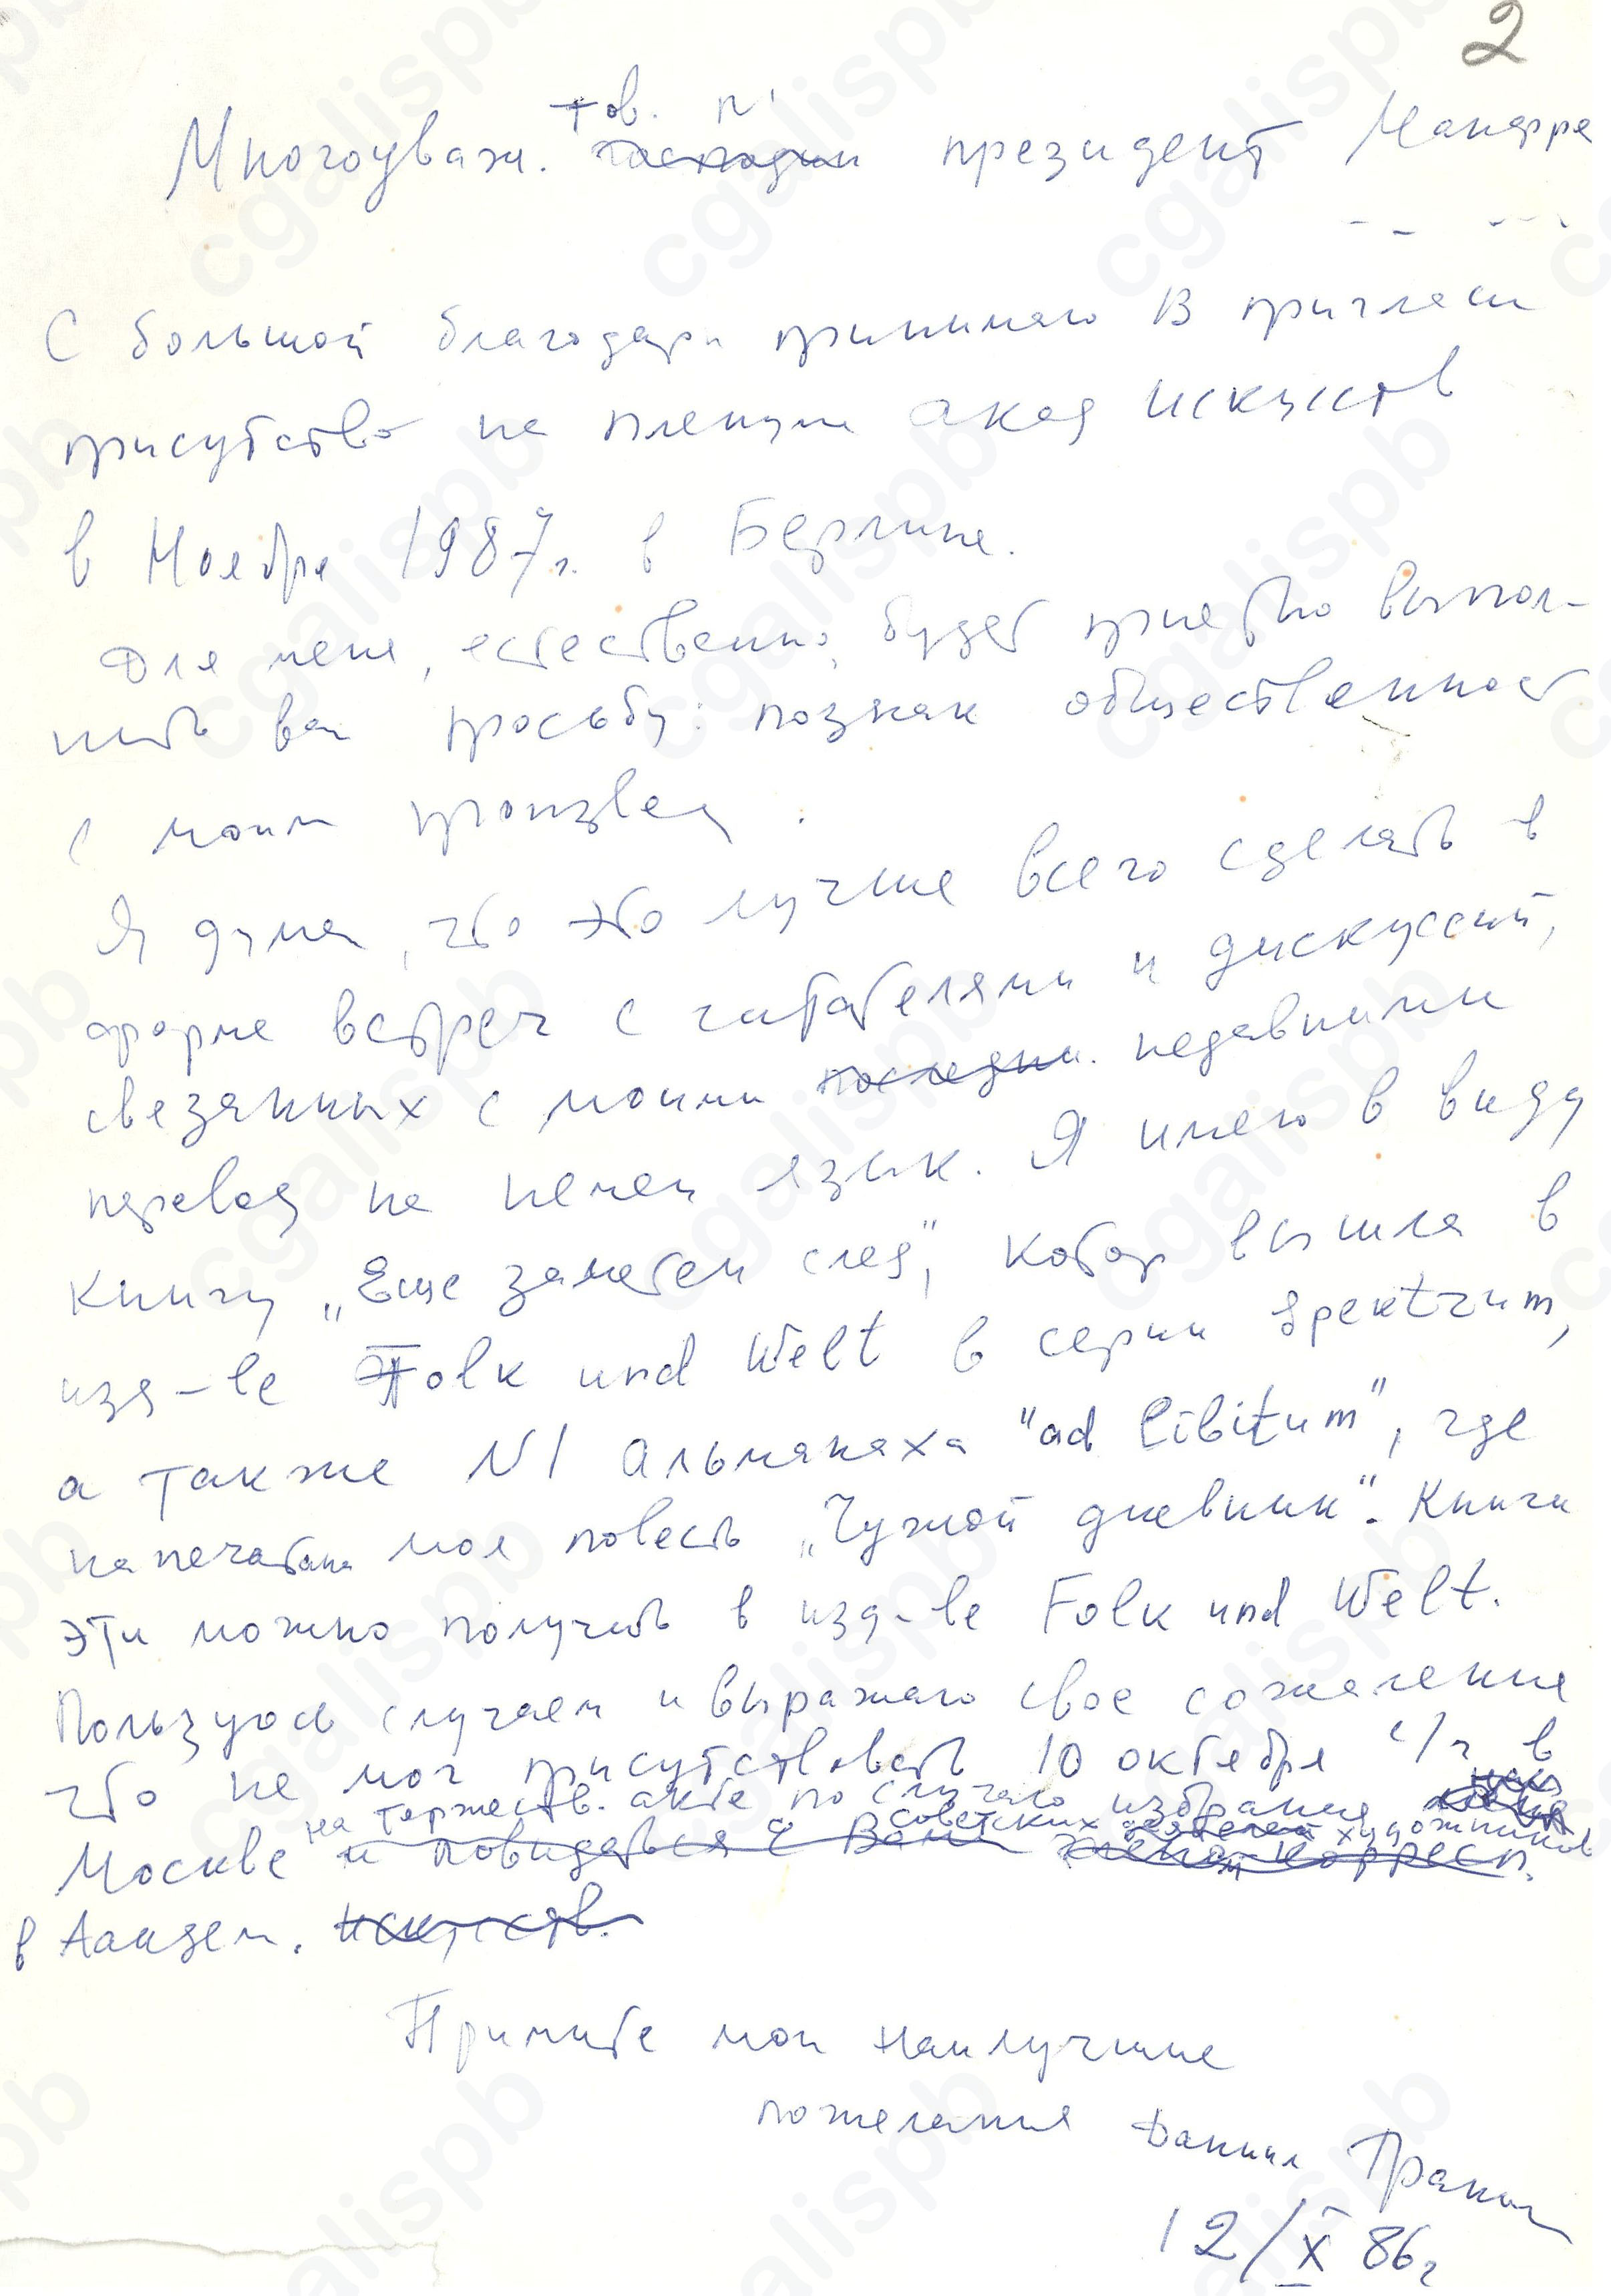 2
тов.
Многоуваж. господин президент Манфре
С большой благодарн принимаю В приглаш
присутство на пленуме акад Искуств
в Ноябре 1987г. в Берлине.
Для меня, естественно, будет приятно выпол-
нить ваш просьбу: познак общественност
с моим произвед.
Я думаю, что это лучше всего сделать в
форме встреч с читателями и дискуссий,
связанных с моими последни. недавними
перевод на немец язык. Я имею в виду
книгу „Еще заметен след", котор вышла в
изд-ве Folk und Welt в серии Spektrum,
а также N1 Альманаха "ad libitum", где
напечатана моя повесть „Чужой дневник". Книги
эти можно получить в изд-ве Folk und Welt.
Пользуюсь случаем и выражаю свое сожеление
что не мог присутствовать 10 октября с/г в
на торжеств. акте по случаю избрания
советских деятелей художников
Москве и повидаться с Вами член-корресп.
в Аакдем. искусств.
Примите мои наилучшие
пожелания Даниил Гранин
12/X 86г